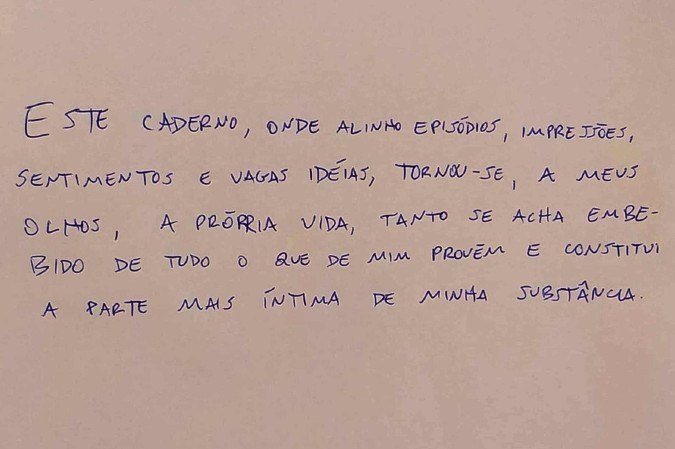 ESTE CADERNO, ONDE ALINHO EPISÓDIOS, IMPRESSÕES,
SENTIMENTOS E VAGAS IDÉIAS, TORNOU-SE, A MEUS
OLHOS, A PRÓPRIA VIDA, TANTO SE ACHA EMBE-
BIDO DE TUDO O QUE DE MIM PROVÉM E CONSTITUI
A PARTE MAIS ÍNTIMA DE MINHA SUBSTÂNCIA.